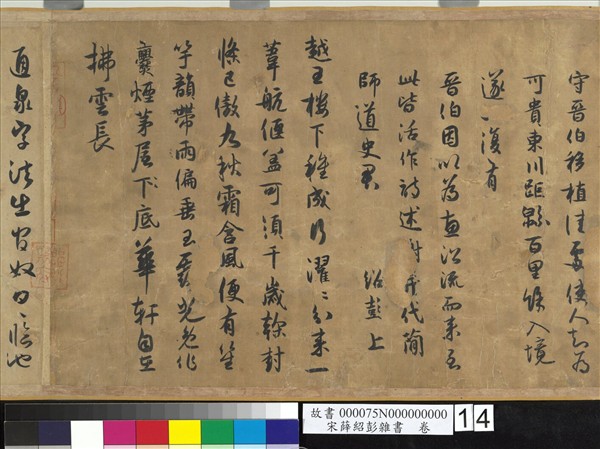 守晉伯移植佳處使人知為
可貴東川距綿百里餘入境
遂一復有
晉伯因以為惠沿流而來至
此皆活作詩述謝幷代簡
師道史君 紹彭上
越王樓下種成行濯〻分來一
葦航偃蓋可須千歲榦封
條已傲九秋霜含風便有笙
竽韻帶雨偏垂玉露光免作
爨煙茅屋下底華軒自在
拂雲長
通泉字法出官奴日〻臨池
故書 000075N000000000
宋薛紹彭雜書 卷
14